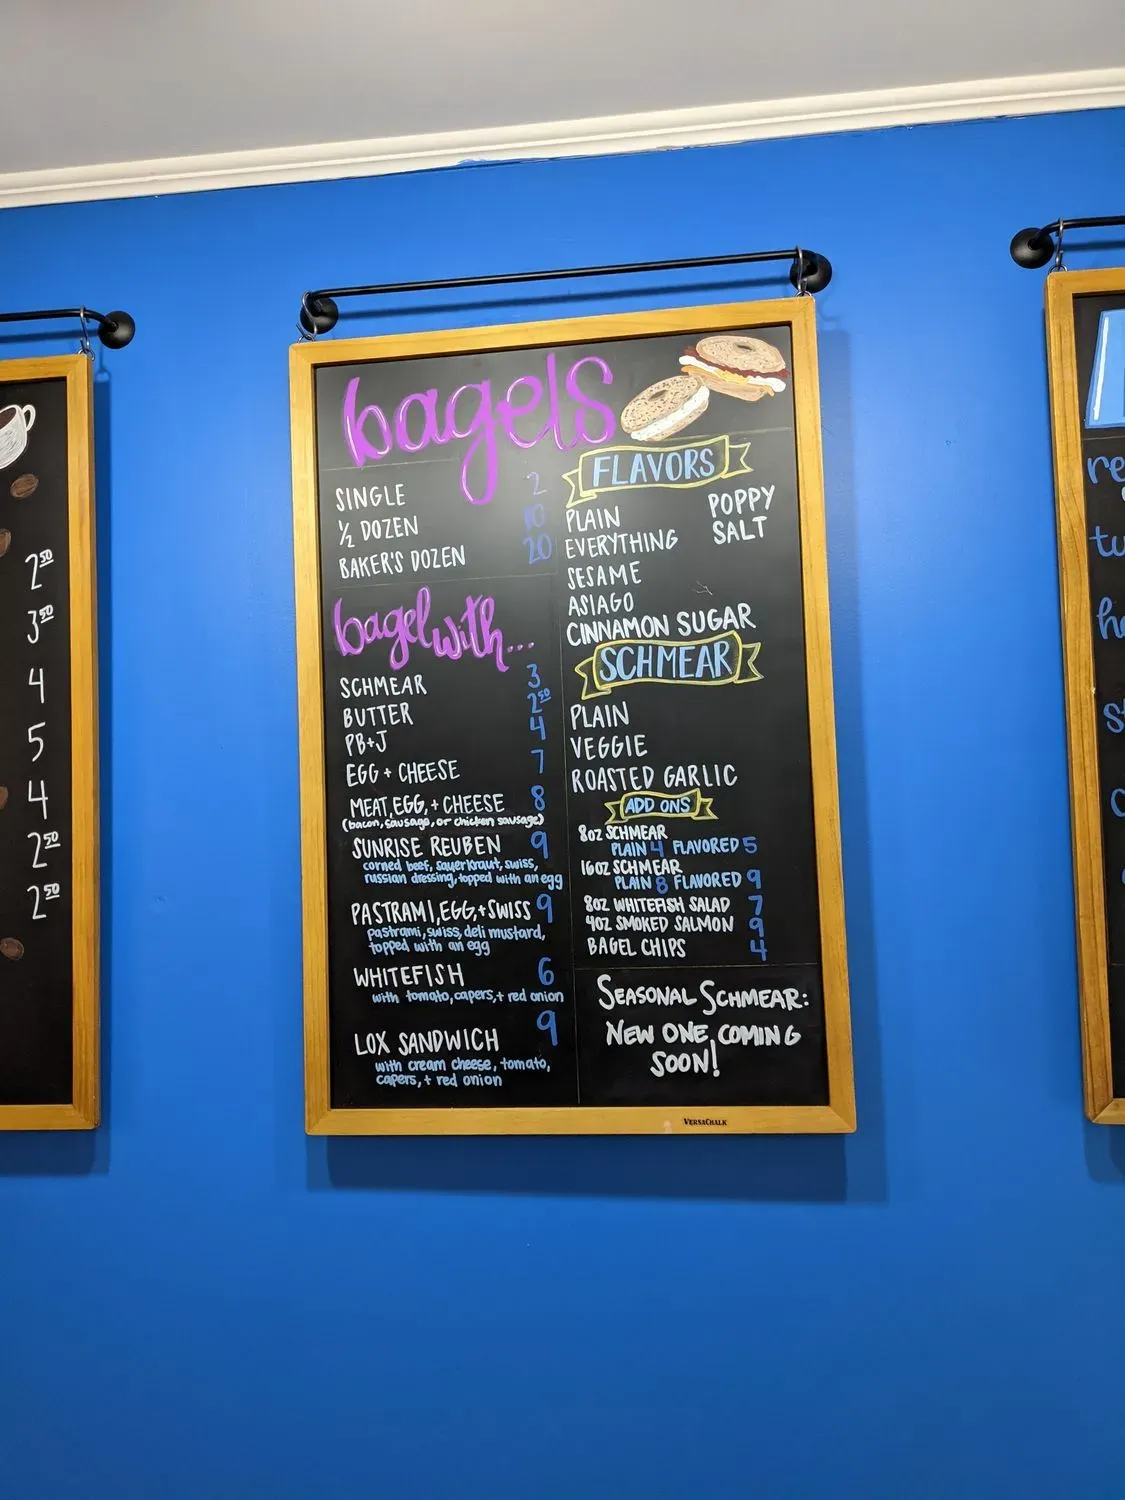 bagels
SINGLE 2
½ DOZEN 10
BAKER'S DOZEN 20
bagel with...
SCHMEAR 3
BUTTER 2⁵⁰
PB+J 4
EGG + CHEESE 7
MEAT, EGG, + CHEESE 8
(bacon, sausage, or chicken sausage)
SUNRISE REUBEN 9
corned beef, sauerkraut, swiss,
russian dressing, topped with an egg
PASTRAMI, EGG, + SWISS 9
pastrami, swiss, deli mustard,
topped with an egg
WHITEFISH 6
with tomato, capers, + red onion
LOX SANDWICH 9
with cream cheese, tomato,
capers, + red onion
FLAVORS
PLAIN
EVERYTHING
SESAME
ASIAGO
CINNAMON SUGAR
POPPY
SALT
SCHMEAR
PLAIN
VEGGIE
ROASTED GARLIC
ADD ONS
8oz SCHMEAR
PLAIN 4 FLAVORED 5
16oz SCHMEAR
PLAIN 8 FLAVORED 9
8oz WHITEFISH SALAD 7
4oz SMOKED SALMON 9
BAGEL CHIPS 4
SEASONAL SCHMEAR:
NEW ONE COMING
SOON!
VERSACHALK
2⁵⁰
3⁵⁰
4
5
4
2⁵⁰
2⁵⁰